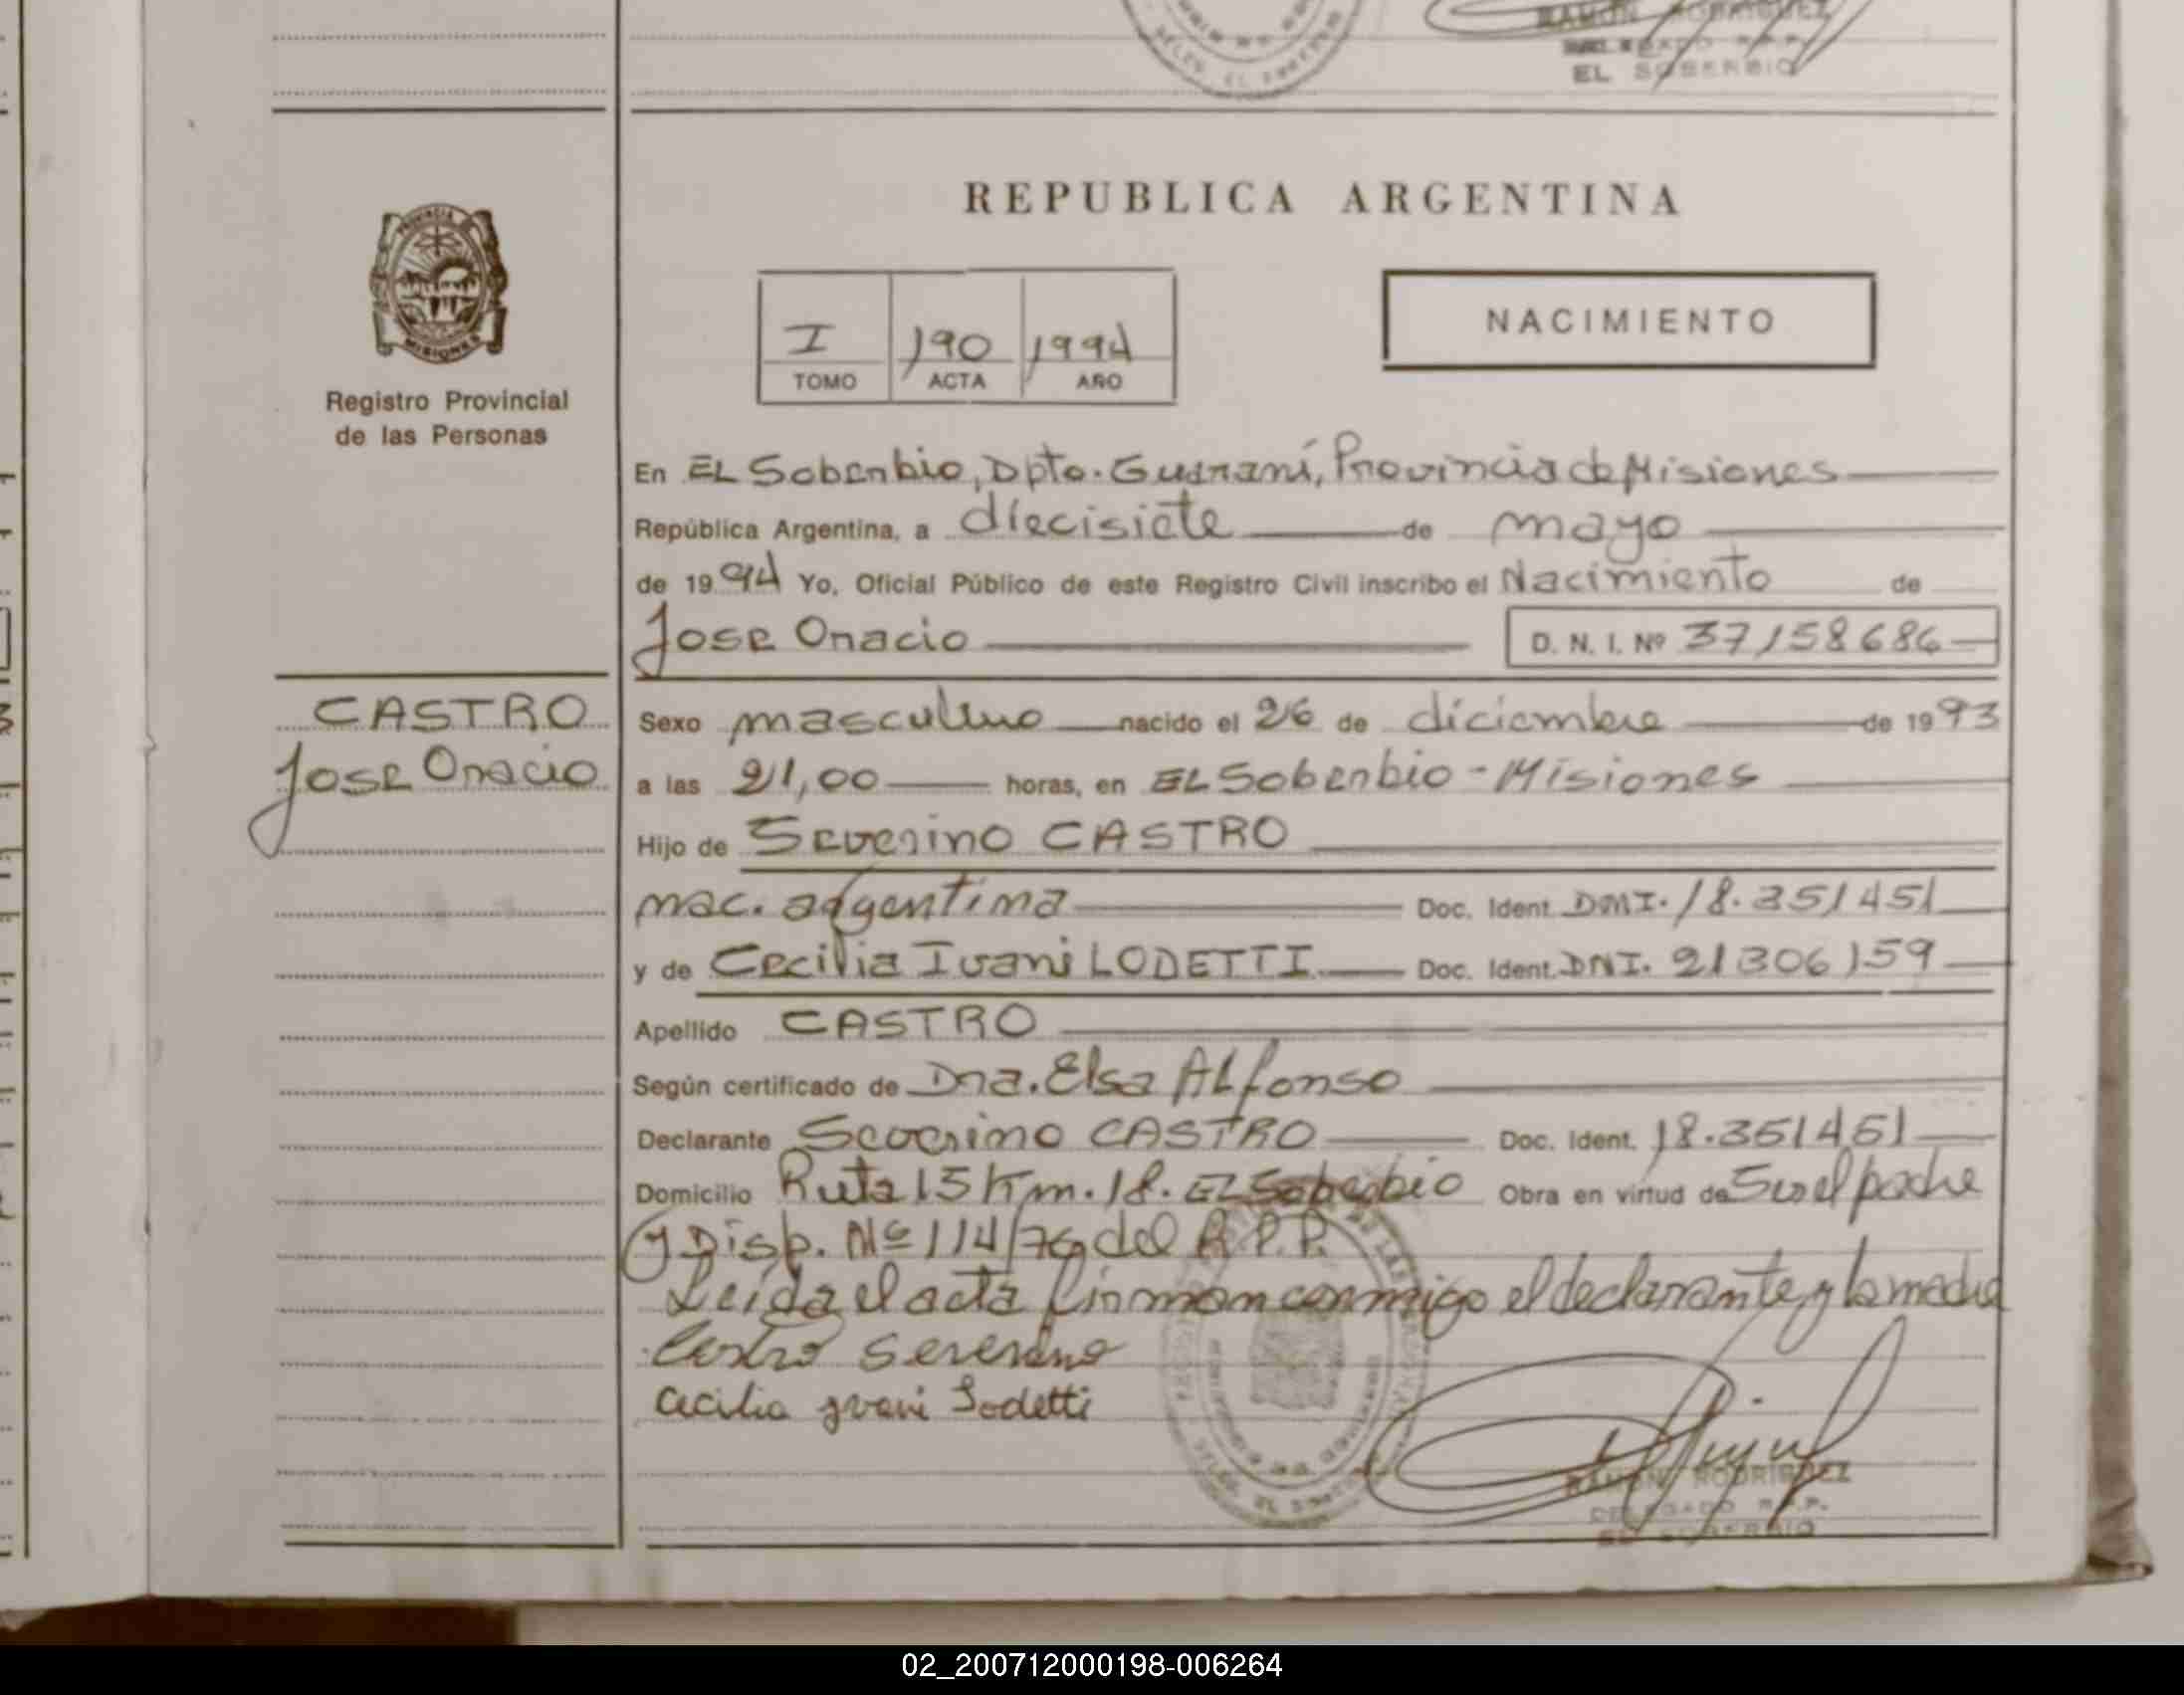 RAMON RODRIGUEZ
DELEGADO R.P.P.
EL SOBERBIO
PROVINCIA
MISIONES
Registro Provincial
de las Personas
REPUBLICA ARGENTINA
I 190 1994
TOMO ACTA AÑO
NACIMIENTO
En EL Soberbio, Dpto. Guaraní, Provincia de Misiones
República Argentina, a diecisiete de mayo
de 1994 Yo, Oficial Público de este Registro Civil inscribo el Nacimiento de
Jose Oracio D. N. I. Nº 37158686
CASTRO
Jose Oracio
Sexo masculino nacido el 26 de diciembre de 1993
a las 21,00 horas, en EL Soberbio - Misiones
Hijo de Severino CASTRO
nac. argentina Doc. Ident. DNI. 18.351451
y de Cecilia Ivani LODETTI Doc. Ident. DNI. 21306159
Apellido CASTRO
Según certificado de Dra. Elsa ALfonso
Declarante Severino CASTRO Doc. Ident. 18.351451
Domicilio Ruta 15 Km. 18. EL Soberbio Obra en virtud de Ser el padre
y Disp. Nº 114/76 del R.P.P.
Leída el acta firman conmigo el declarante y la madre
Castro Severino
Cecilia Ivani Lodetti
RAMON RODRIGUEZ
DELEGADO R.P.P.
EL SOBERBIO
02_200712000198-006264